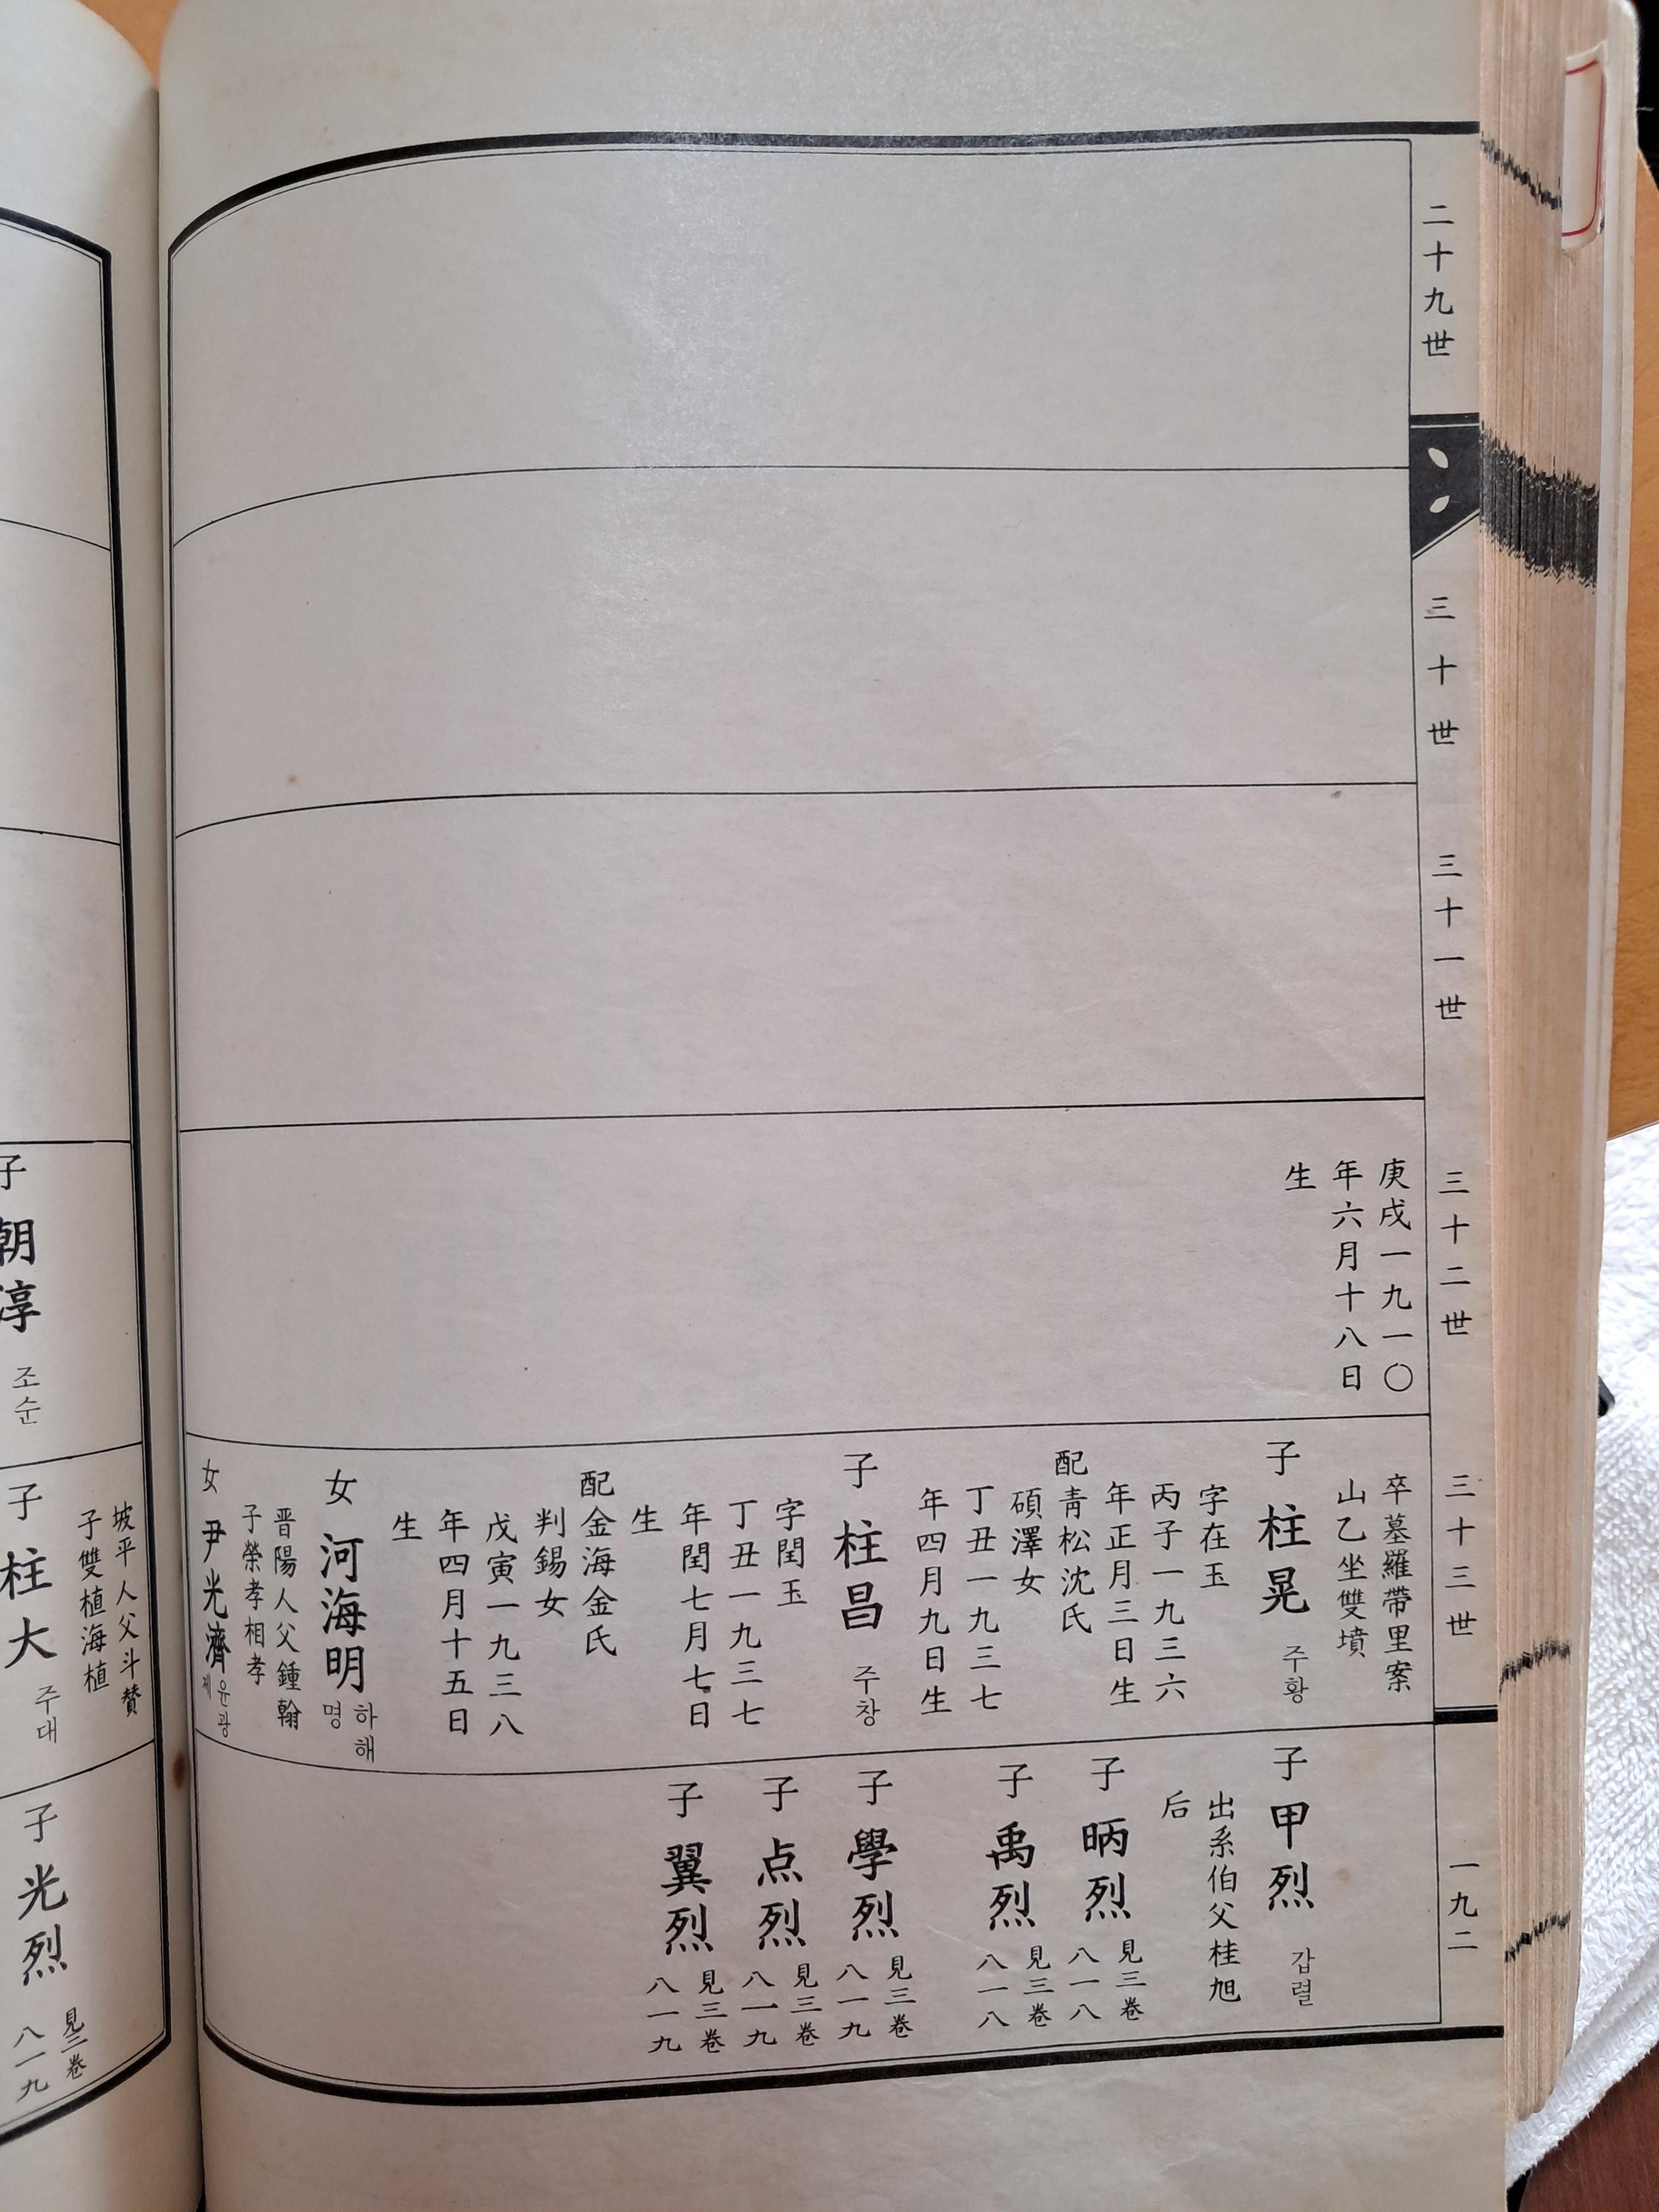 二十九世
三十世
三十一世
三十二世
三十三世
一九二
庚戌一九一〇
年六月十八日
生
卒墓羅帶里案
山乙坐雙墳
子 柱晃 주황
字在玉
丙子一九三六
年正月三日生
配青松沈氏
碩澤女
丁丑一九三七
年四月九日生
子 柱昌 주창
字閏玉
丁丑一九三七
年閏七月七日
生
配金海金氏
判錫女
戊寅一九三八
年四月十五日
生
女 河海明 하해
명
晋陽人父鍾翰
子榮孝相孝
女 尹光濟 윤광
제
子 甲烈 갑렬
出系伯父桂旭
后
子 昞烈 見三卷
八一八
子 禹烈 見三卷
八一八
子 學烈 見三卷
八一九
子 点烈 見三卷
八一九
子 翼烈 見三卷
八一九
子 朝淳 조순
坡平人父斗贊
子雙植海植
子 柱大 주대
子 光烈 見三卷
八一九